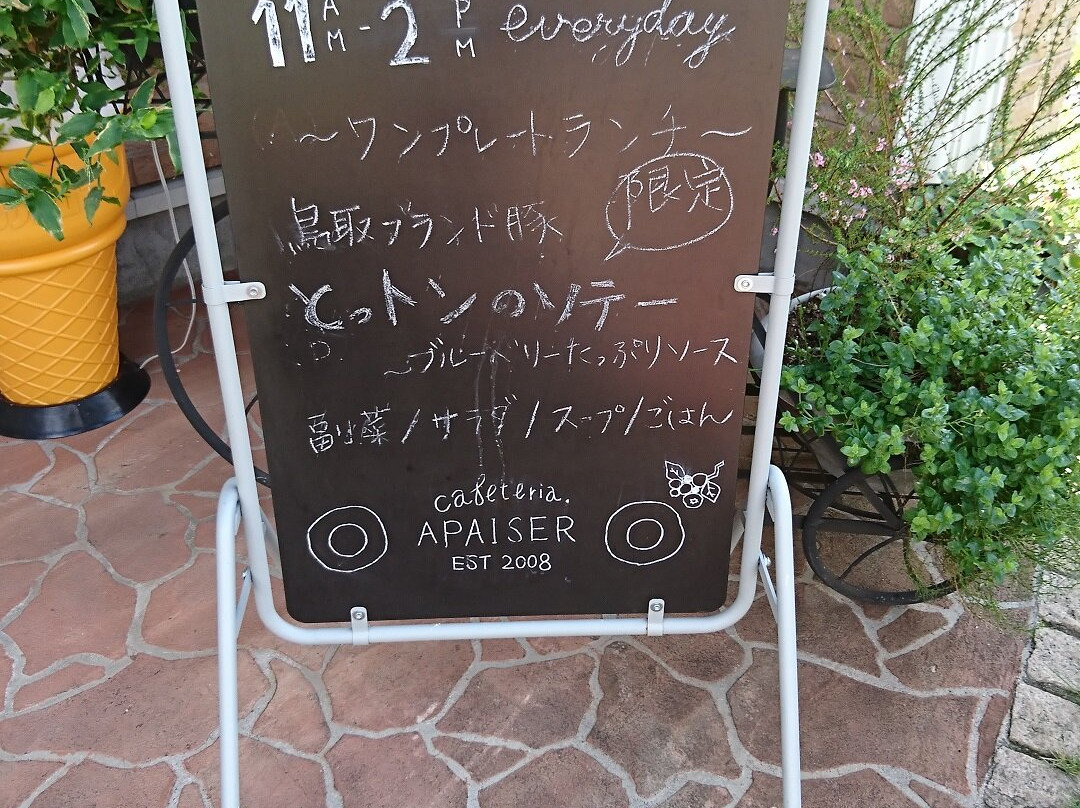 11AM-2PM everyday
～ワンプレートランチ～
限定
鳥取ブランド豚
とっトンのソテー
～ブルーベリーたっぷりソース
副菜/サラダ/スープ/ごはん
cafeteria.
APAISER
EST 2008